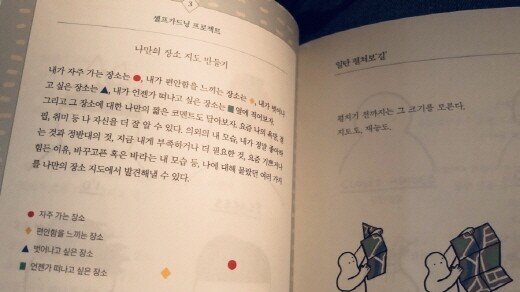 3
셀프가드닝 프로젝트
나만의 장소 지도 만들기
내가 자주 가는 장소는 ●, 내가 편안함을 느끼는 장소는 ◆, 내가 벗어나
고 싶은 장소는 ▲, 내가 언젠가 떠나고 싶은 장소는 ■ 옆에 적어보자.
그리고 그 장소에 대한 나만의 짧은 코멘트도 담아보자. 요즘 나의 욕망,
핍, 취미 등 나 자신을 더 잘 알 수 있다. 의외의 내 모습, 내가 정말 좋아하
는 것과 정반대의 것, 지금 내게 부족하거나 더 필요한 것, 요즘 기쁘거나
힘든 이유, 바꾸고픈 혹은 바라는 내 모습 등, 나에 대해 몰랐던 여러 가지
를 나만의 장소 지도에서 발견해낼 수 있다.
● 자주 가는 장소
◆ 편안함을 느끼는 장소
▲ 벗어나고 싶은 장소
■ 언젠가 떠나고 싶은 장소
일단 펼쳐보'길'
펼치기 전까지는 그 크기를 모른다.
지도도, 재능도.